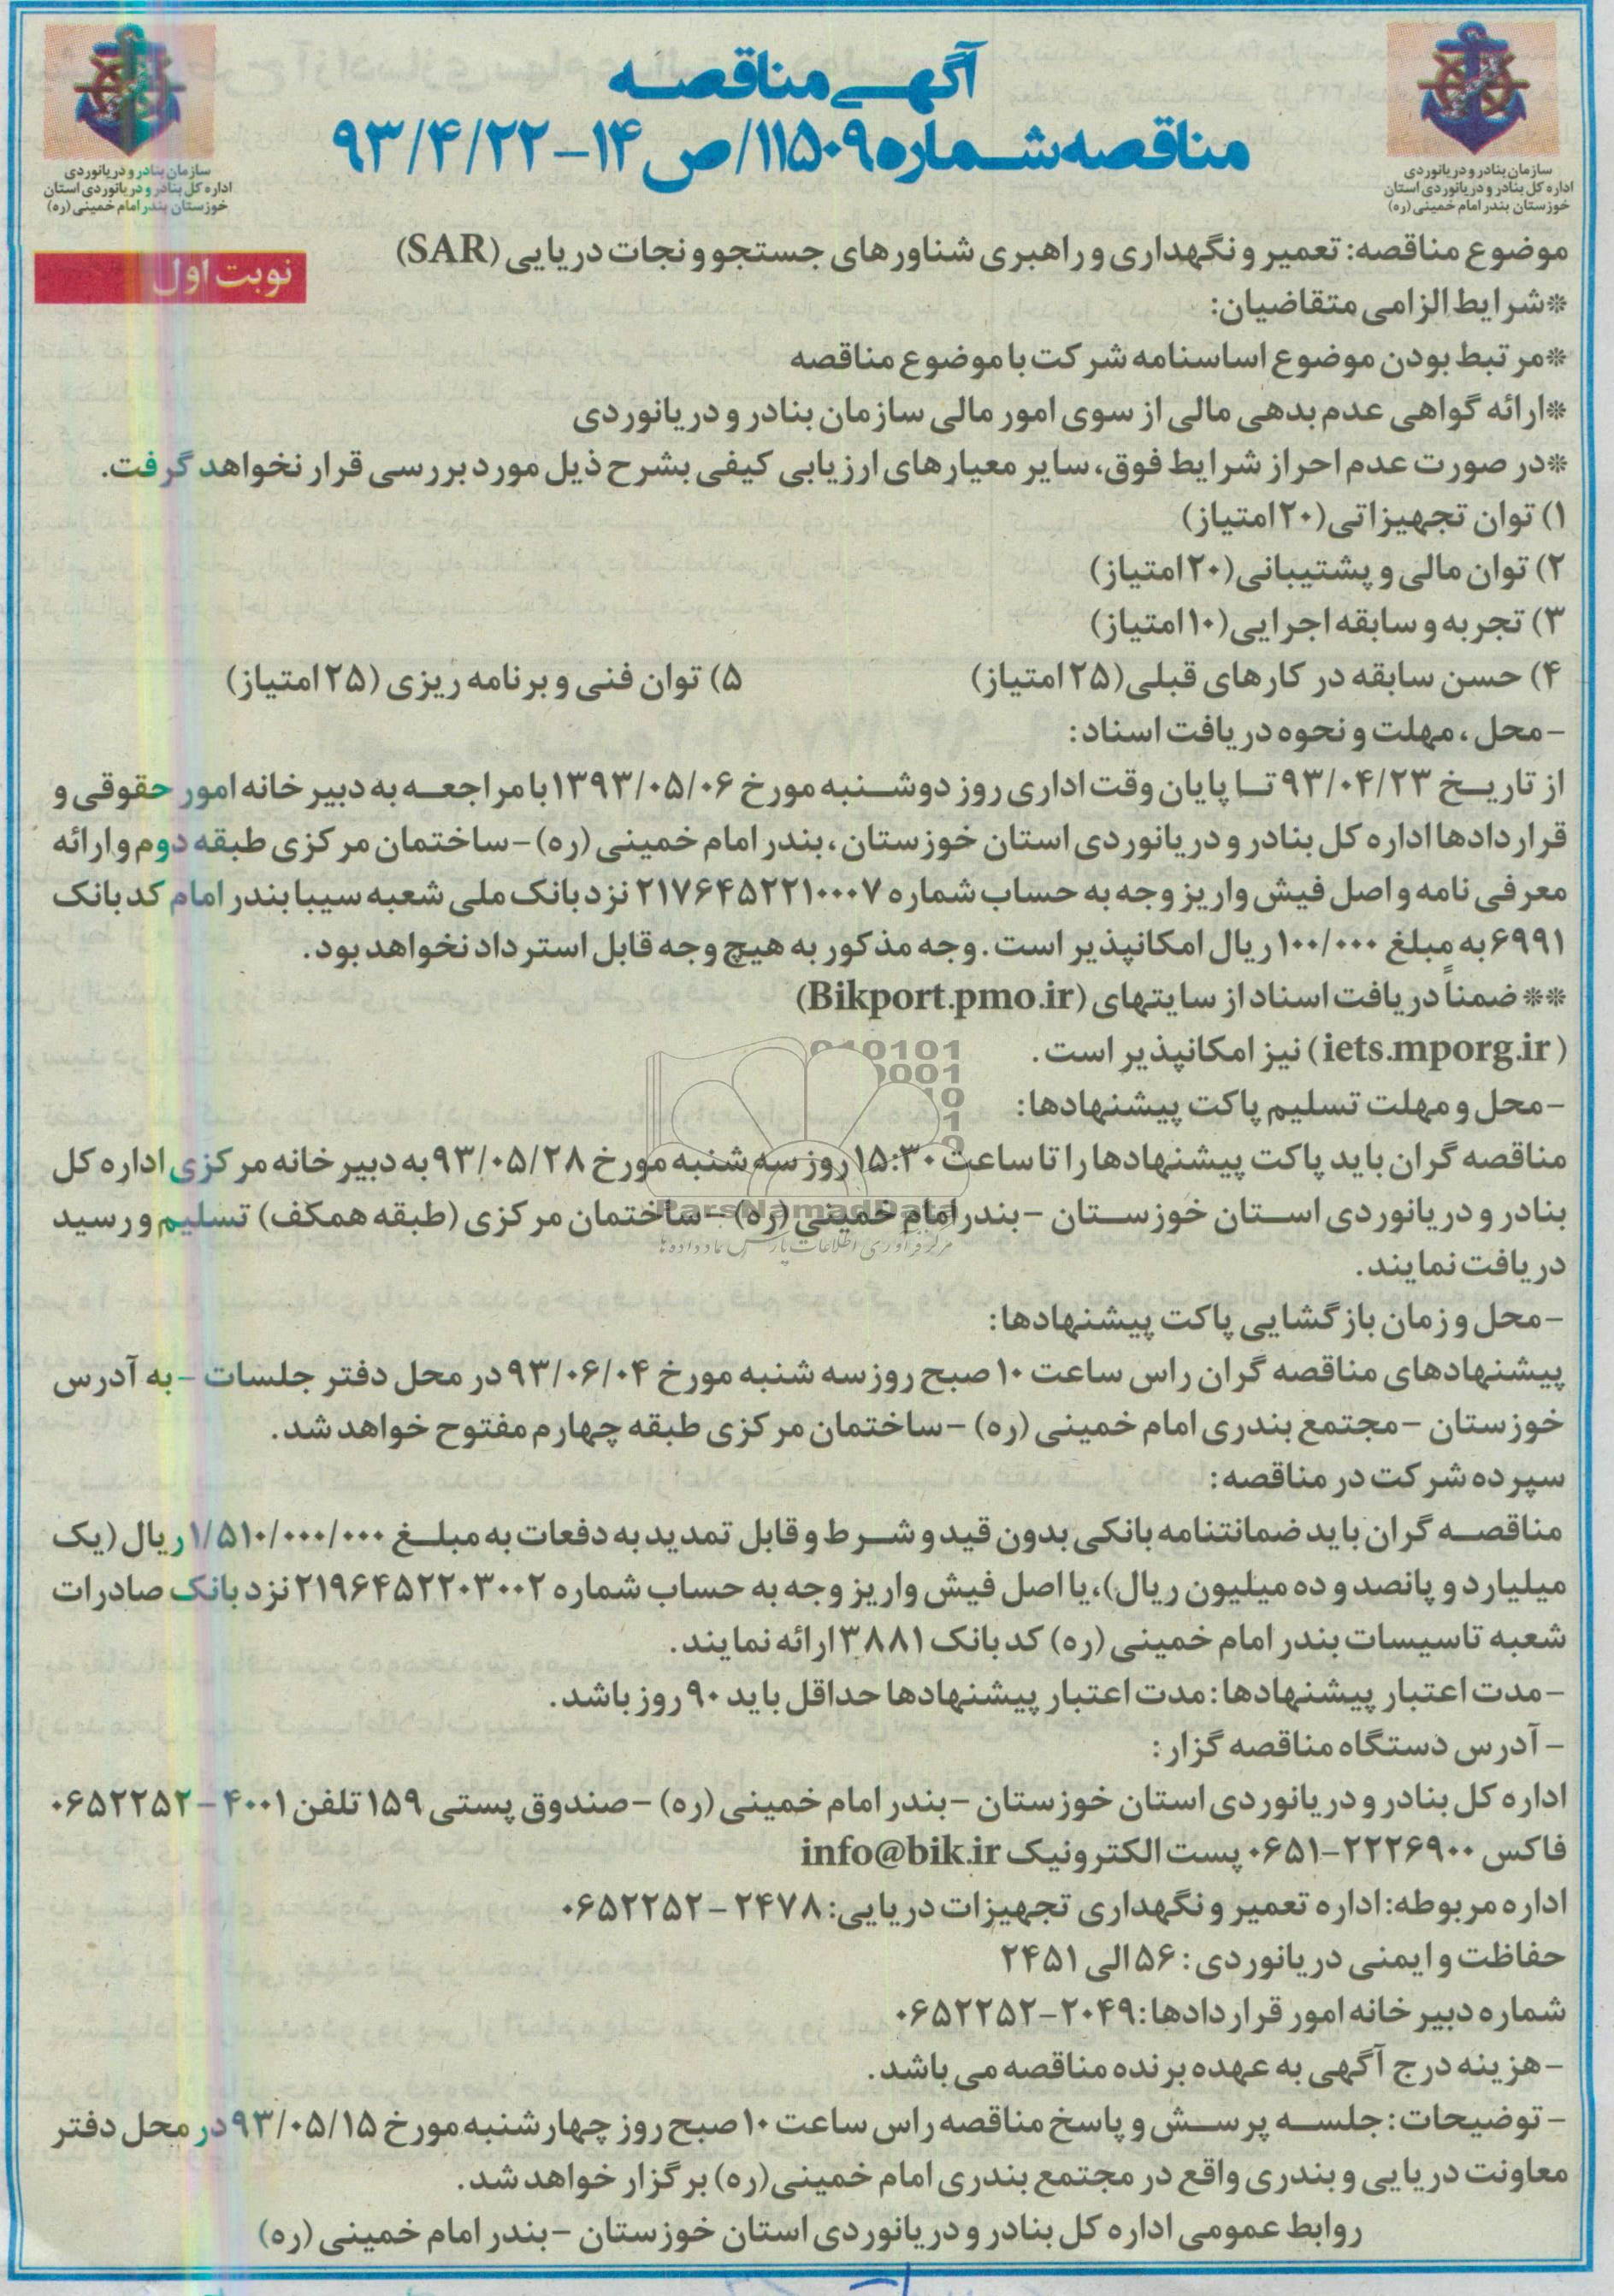 آگهی مناقصه
مناقصه شماره ۱۱۵۰۹/ص ۱۴-۹۳/۴/۲۲
سازمان بنادر و دریانوردی
اداره کل بنادر و دریانوردی استان
خوزستان بندر امام خمینی (ره)
سازمان بنادر و دریانوردی
اداره کل بنادر و دریانوردی استان
خوزستان بندر امام خمینی (ره)
نوبت اول
موضوع مناقصه: تعمیر و نگهداری و راهبری شناورهای جستجو و نجات دریایی (SAR)
*شرایط الزامی متقاضیان:
*مرتبط بودن موضوع اساسنامه شرکت با موضوع مناقصه
*ارائه گواهی عدم بدهی مالی از سوی امور مالی سازمان بنادر و دریانوردی
*در صورت عدم احراز شرایط فوق، سایر معیارهای ارزیابی کیفی بشرح ذیل مورد بررسی قرار نخواهد گرفت.
۱) توان تجهیزاتی (۲۰ امتیاز)
۲) توان مالی و پشتیبانی (۲۰ امتیاز)
۳) تجربه و سابقه اجرایی (۱۰ امتیاز)
۴) حسن سابقه در کارهای قبلی (۲۵ امتیاز) ۵) توان فنی و برنامه ریزی (۲۵ امتیاز)
- محل ، مهلت و نحوه دریافت اسناد:
از تاریخ ۹۳/۰۴/۲۳ تا پایان وقت اداری روز دوشنبه مورخ ۱۳۹۳/۰۵/۰۶ با مراجعه به دبیرخانه امور حقوقی و
قراردادها اداره کل بنادر و دریانوردی استان خوزستان ، بندر امام خمینی (ره) - ساختمان مرکزی طبقه دوم و ارائه
معرفی نامه و اصل فیش واریز وجه به حساب شماره ۲۱۷۶۴۵۲۲۱۰۰۰۷ نزد بانک ملی شعبه سیبا بندر امام کد بانک
۶۹۹۱ به مبلغ ۱۰۰/۰۰۰ ریال امکانپذیر است. وجه مذکور به هیچ وجه قابل استرداد نخواهد بود.
** ضمناً دریافت اسناد از سایتهای (Bikport.pmo.ir)
(iets.mporg.ir) نیز امکانپذیر است.
- محل و مهلت تسلیم پاکت پیشنهادها:
مناقصه گران باید پاکت پیشنهادها را تا ساعت ۱۵:۳۰ روز سه شنبه مورخ ۹۳/۰۵/۲۸ به دبیرخانه مرکزی اداره کل
بنادر و دریانوردی استان خوزستان - بندر امام خمینی (ره) - ساختمان مرکزی (طبقه همکف) تسلیم و رسید
دریافت نمایند.
ParsNamadData
مرکز فرآوری اطلاعات پارس نماد داده ها
- محل و زمان بازگشایی پاکت پیشنهادها:
پیشنهادهای مناقصه گران راس ساعت ۱۰ صبح روز سه شنبه مورخ ۹۳/۰۶/۰۴ در محل دفتر جلسات - به آدرس
خوزستان - مجتمع بندری امام خمینی (ره) - ساختمان مرکزی طبقه چهارم مفتوح خواهد شد.
سپرده شرکت در مناقصه:
مناقصه گران باید ضمانتنامه بانکی بدون قید و شرط و قابل تمدید به دفعات به مبلغ ۱/۵۱۰/۰۰۰/۰۰۰ ریال (یک
میلیارد و پانصد و ده میلیون ریال)، یا اصل فیش واریز وجه به حساب شماره ۲۱۹۶۴۵۲۲۰۳۰۰۲ نزد بانک صادرات
شعبه تاسیسات بندر امام خمینی (ره) کد بانک ۳۸۸۱ ارائه نمایند.
- مدت اعتبار پیشنهادها: مدت اعتبار پیشنهادها حداقل باید ۹۰ روز باشد.
- آدرس دستگاه مناقصه گزار:
اداره کل بنادر و دریانوردی استان خوزستان - بندر امام خمینی (ره) - صندوق پستی ۱۵۹ تلفن ۴۰۰۱ - ۰۶۵۲۲۵۲
فاکس ۲۲۲۶۹۰۰-۰۶۵۱ پست الکترونیک info@bik.ir
اداره مربوطه: اداره تعمیر و نگهداری تجهیزات دریایی: ۲۴۷۸ - ۰۶۵۲۲۵۲
حفاظت و ایمنی دریانوردی: ۵۶ الی ۲۴۵۱
شماره دبیرخانه امور قراردادها: ۲۰۴۹-۰۶۵۲۲۵۲
- هزینه درج آگهی به عهده برنده مناقصه می باشد.
- توضیحات: جلسه پرسش و پاسخ مناقصه راس ساعت ۱۰ صبح روز چهارشنبه مورخ ۹۳/۰۵/۱۵ در محل دفتر
معاونت دریایی و بندری واقع در مجتمع بندری امام خمینی (ره) برگزار خواهد شد.
روابط عمومی اداره کل بنادر و دریانوردی استان خوزستان - بندر امام خمینی (ره)